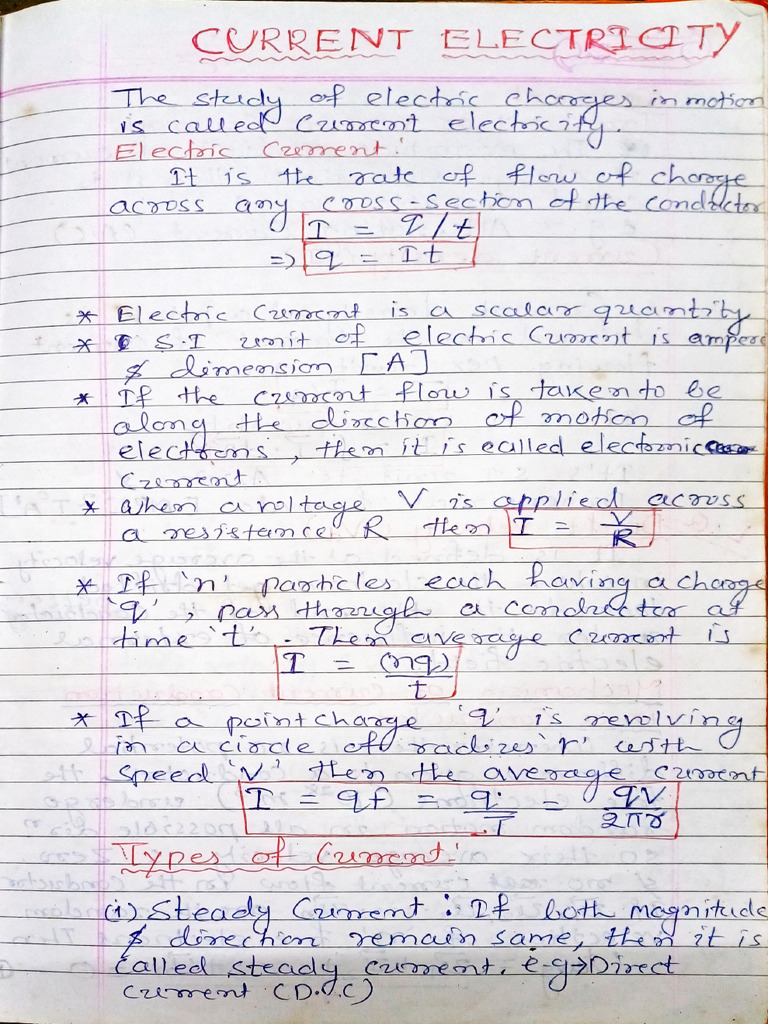 CURRENT ELECTRICITY
The study of electric charges in motion
is called Current electricity.
Electric Current:
It is the rate of flow of charge
across any cross-section of the conductor
I = q/t
=> q = It
* Electric Current is a scalar quantity
* S.I unit of electric Current is ampere
& dimension [A]
* If the current flow is taken to be
along the direction of motion of
electrons, then it is called electronic
Current.
* When a voltage V is applied across
a resistance R then I = V/R
* If 'n' particles each having a charge
'q', pass through a conductor at
time 't'. Then average current is
I = (nq)/t
* If a point charge 'q' is revolving
in a circle of radius 'r' with
speed 'V' then the average current
I = qf = q/T = qV/2πr
Types of Current:
(i) Steady Current: If both magnitude
& direction remain same, then it is
called steady current. e-g→Direct
current (D.C)